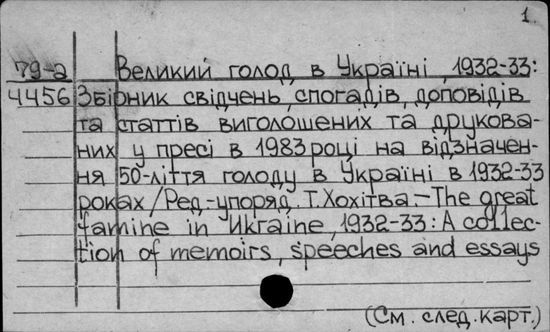 1
79-2 Великий голод в Україні, 1932-33:
4456 Збірник свідчень, спогадів, доповідів
та статтів виголошених та друкова-
них у пресі в 1983 році на відзначен-
ня 50-ліття голоду в Україні в 1932-33
роках / Ред.-упоряд. Т. Хохітва.—The great
famine in Ukraine, 1932-33: A collec-
tion of memoirs, speeches and essays
(См. след. карт.)